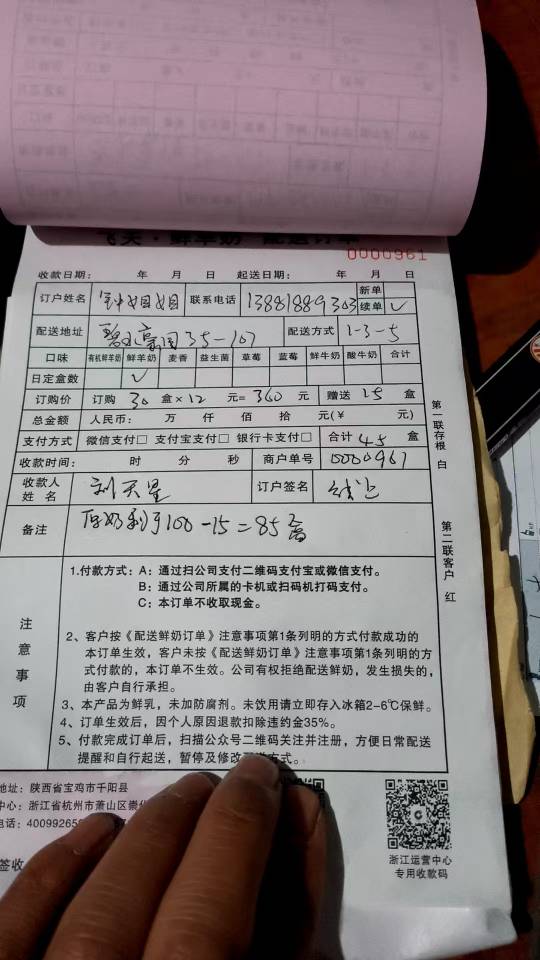 飞天·鲜羊奶 配送订单
0000961
收款日期： 年 月 日 起送日期： 年 月 日
订户姓名 钟姐姐 联系电话 13881889303 新单 续单 ✓
配送地址 35-107 配送方式 1-3-5
口味 有机鲜羊奶 鲜羊奶 麦香 益生菌 草莓 蓝莓 鲜牛奶 酸牛奶 合计
日定盒数 ✓
订购价 订购 30 盒×12 元=360元 赠送 15 盒
总金额 人民币： 万 仟 佰 拾 元(￥ 元)
支付方式 微信支付□ 支付宝支付□ 银行卡支付□ 合计 45 盒
收款时间： 时 分 秒 商户单号 0000961
收款人姓名 刘天星 订户签名 线上
备注 100-15=85盒
第一联存根 白
第二联客户 红
注意事项
1.付款方式：A：通过扫公司支付二维码支付宝或微信支付。
B：通过公司所属的卡机或扫码机打码支付。
C：本订单不收取现金。
2、客户按《配送鲜奶订单》注意事项第1条列明的方式付款成功的
本订单生效，客户未按《配送鲜奶订单》注意事项第1条列明的方
式付款的，本订单不生效。公司有权拒绝配送鲜奶，发生损失的，
由客户自行承担。
3、本产品为鲜乳，未加防腐剂。未饮用请立即存入冰箱2-6℃保鲜。
4、订单生效后，因个人原因退款扣除违约金35%。
5、付款完成订单后，扫描公众号二维码关注并注册，方便日常配送
提醒和自行起送，暂停及修改方式。
地址：陕西省宝鸡市千阳县
中心：浙江省杭州市萧山区崇化
电话：40099265
签收
浙江运营中心
专用收款码